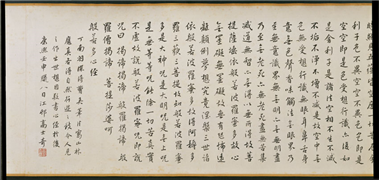 照見五蘊皆空度一切苦厄舍
利子色不異空空不異色色即是
空空即是色受想行識亦復如
是舍利子是諸法空相不生不滅
不垢不淨不增不減是故空中無
色無受想行識無眼耳鼻舌身
意無色聲香味觸法無眼界乃
至無意識界無無明亦無無明盡
乃至無老死亦無老死盡無苦集
滅道無智亦無得以無所得故菩
提薩埵依般若波羅蜜多故心
無罣礙無罣礙故無有恐怖遠離
顛倒夢想究竟涅槃三世諸佛
依般若波羅蜜多故得阿耨多
羅三藐三菩提故知般若波羅蜜
多是大神咒是大明咒是無上咒
是無等等咒能除一切苦真實
不虛故說般若波羅蜜多咒即說
咒曰揭諦揭諦般羅揭諦般
羅僧揭諦菩提薩婆訶
般若多心經
丁南羽
書心經於後
康熙壬申江邨高士奇